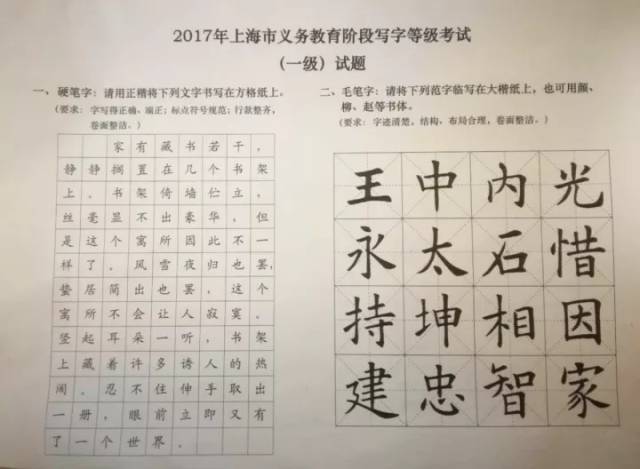 2017年上海市义务教育阶段写字等级考试
（一级）试题
一、硬笔字：请用正楷将下列文字书写在方格纸上。
（要求：字写得正确、端正；标点符号规范；行款整齐，
卷面整洁。）
家有藏书若干，
静静搁置在几个书架
上。书架倚墙伫立，
丝毫显不出豪华。但
是这个寓所因此不一
样了。风雪夜归也罢，
蛰居简出也罢，这个
寓所不会让人寂寞。
竖起耳朵一听，书架
上藏着许多诱人的热
闹。忍不住伸手取出
一册，眼前立即又有
了一个世界。
二、毛笔字：请将下列范字临写在大楷纸上，也可用颜、
柳、赵等书体。
（要求：字迹清楚，结构、布局合理，卷面整洁。）
王中内光
永太石惜
持坤相因
建忠智家